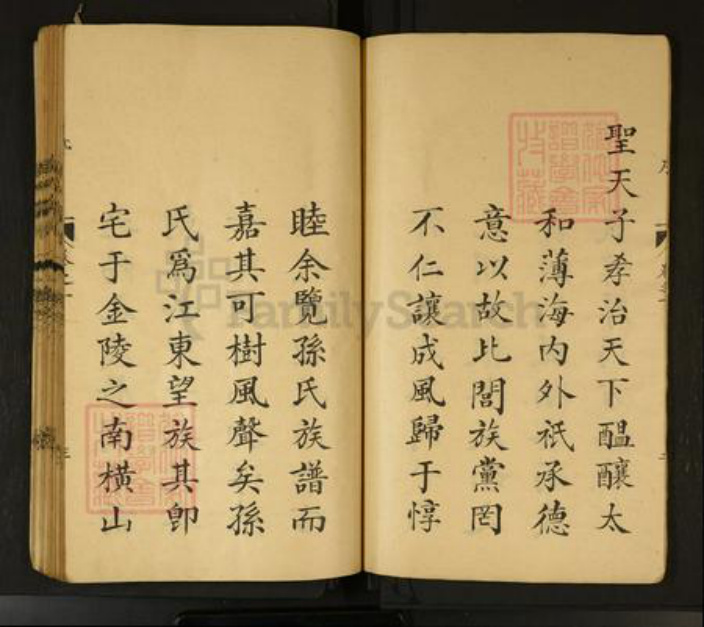 聖天子孝治天下醞釀太
和薄海內外祇承德
意以故比閭族黨罔
不仁讓成風歸于惇
睦余覽孫氏族譜而
嘉其可樹風聲矣孫
氏爲江東望族其卽
宅于金陵之南橫山
FamilySearch